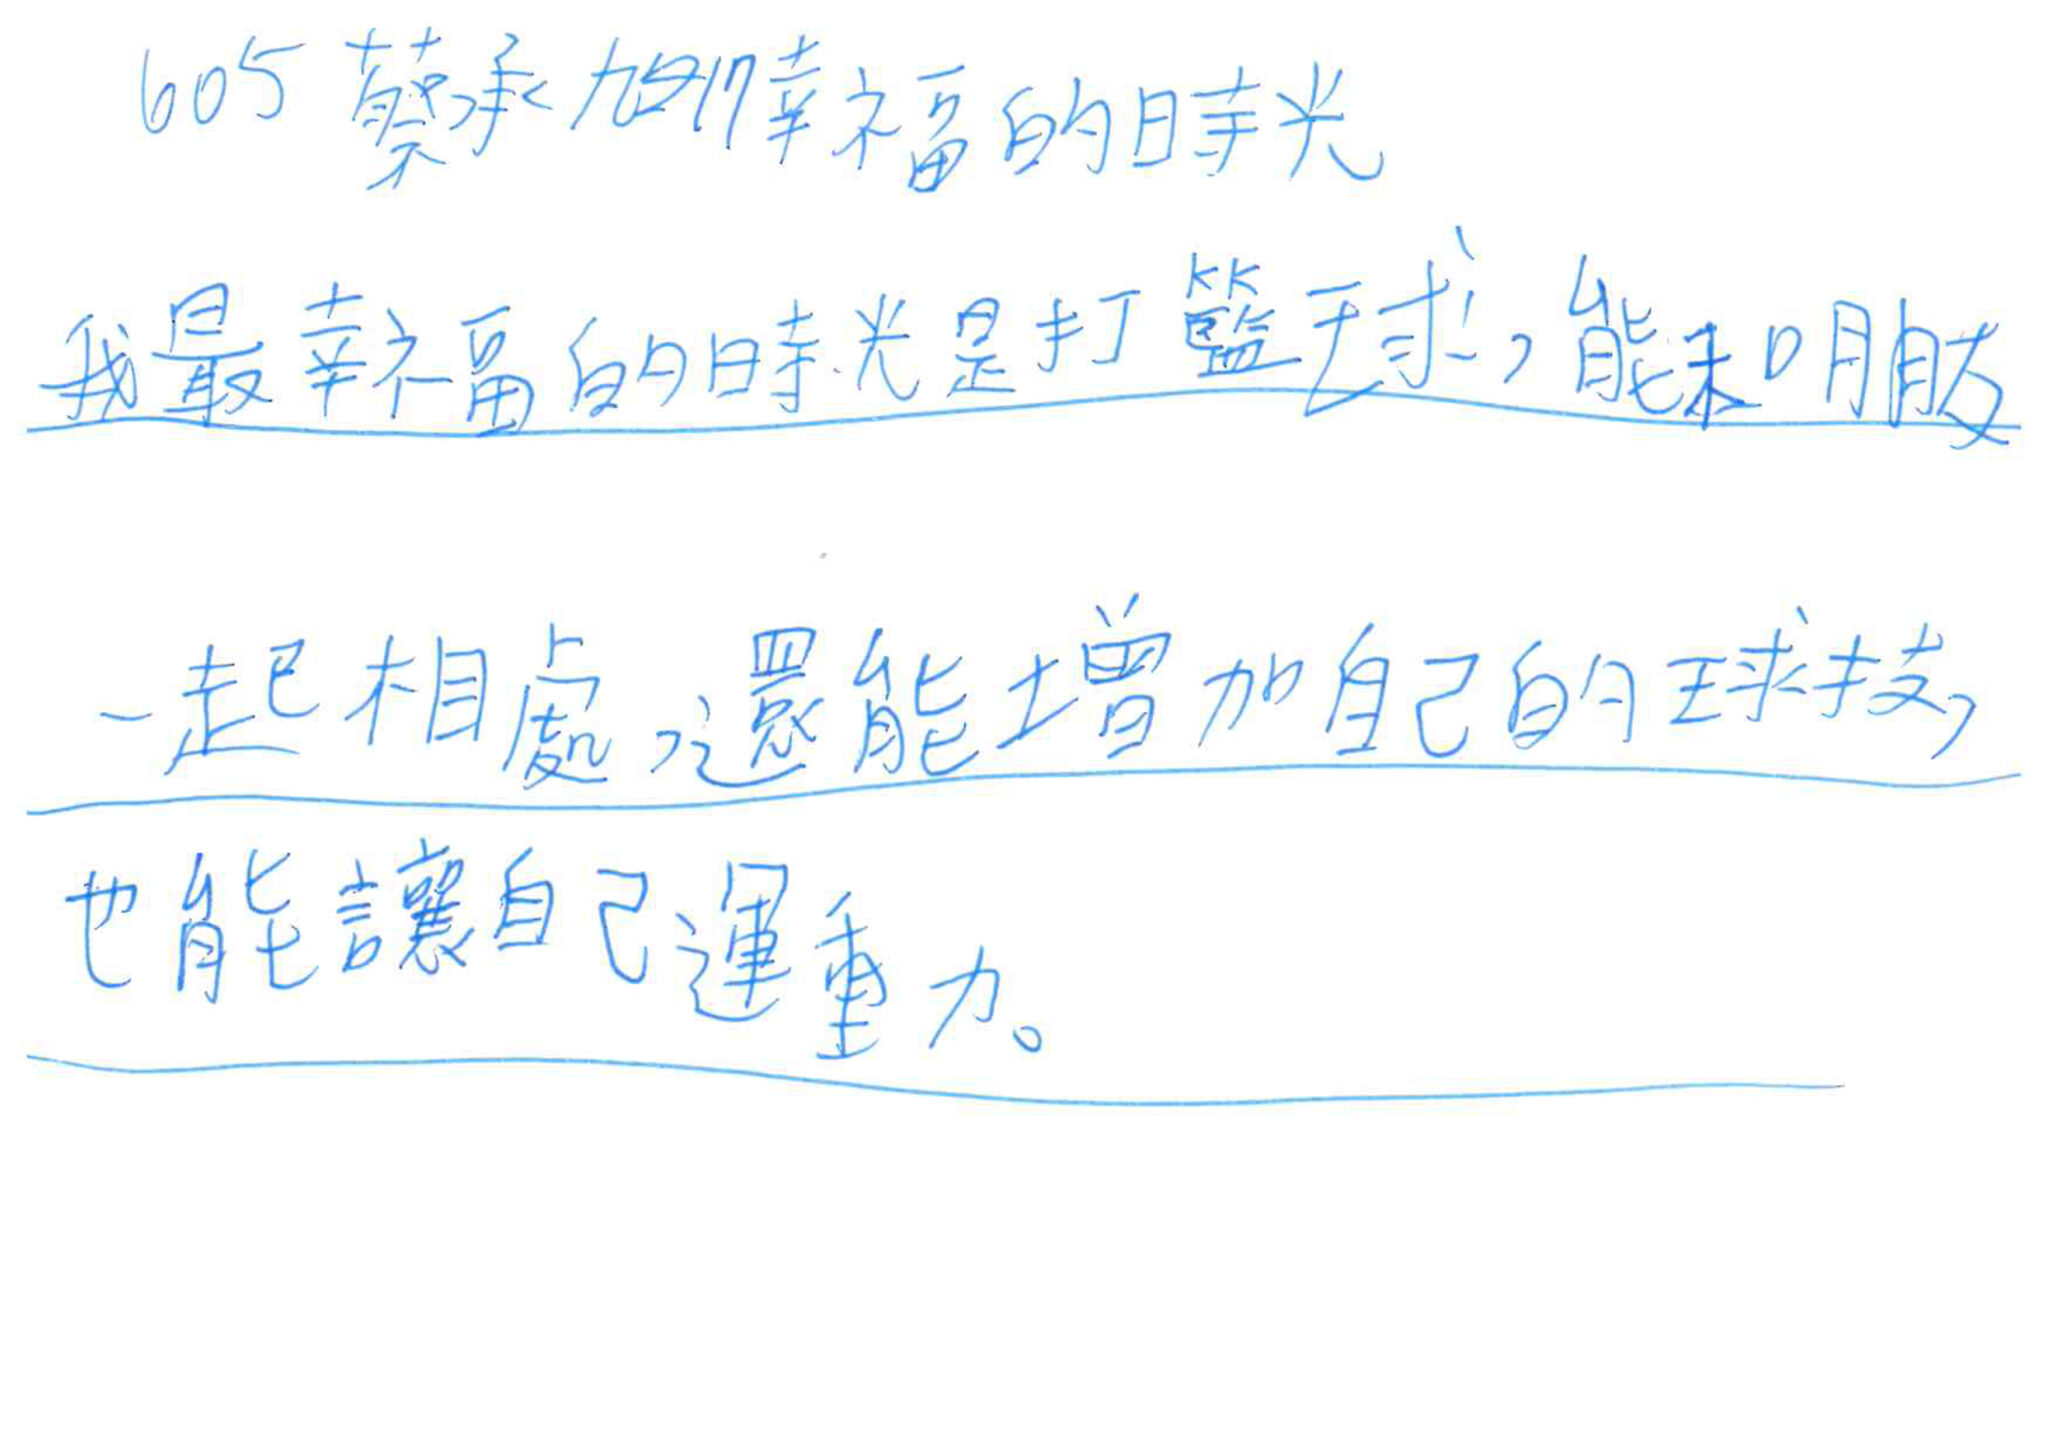 605 蔡承 17 幸福的時光
我最幸福的時光是打籃球，能和朋友
一起相處，還能增加自己的球技，
也能讓自己運動。